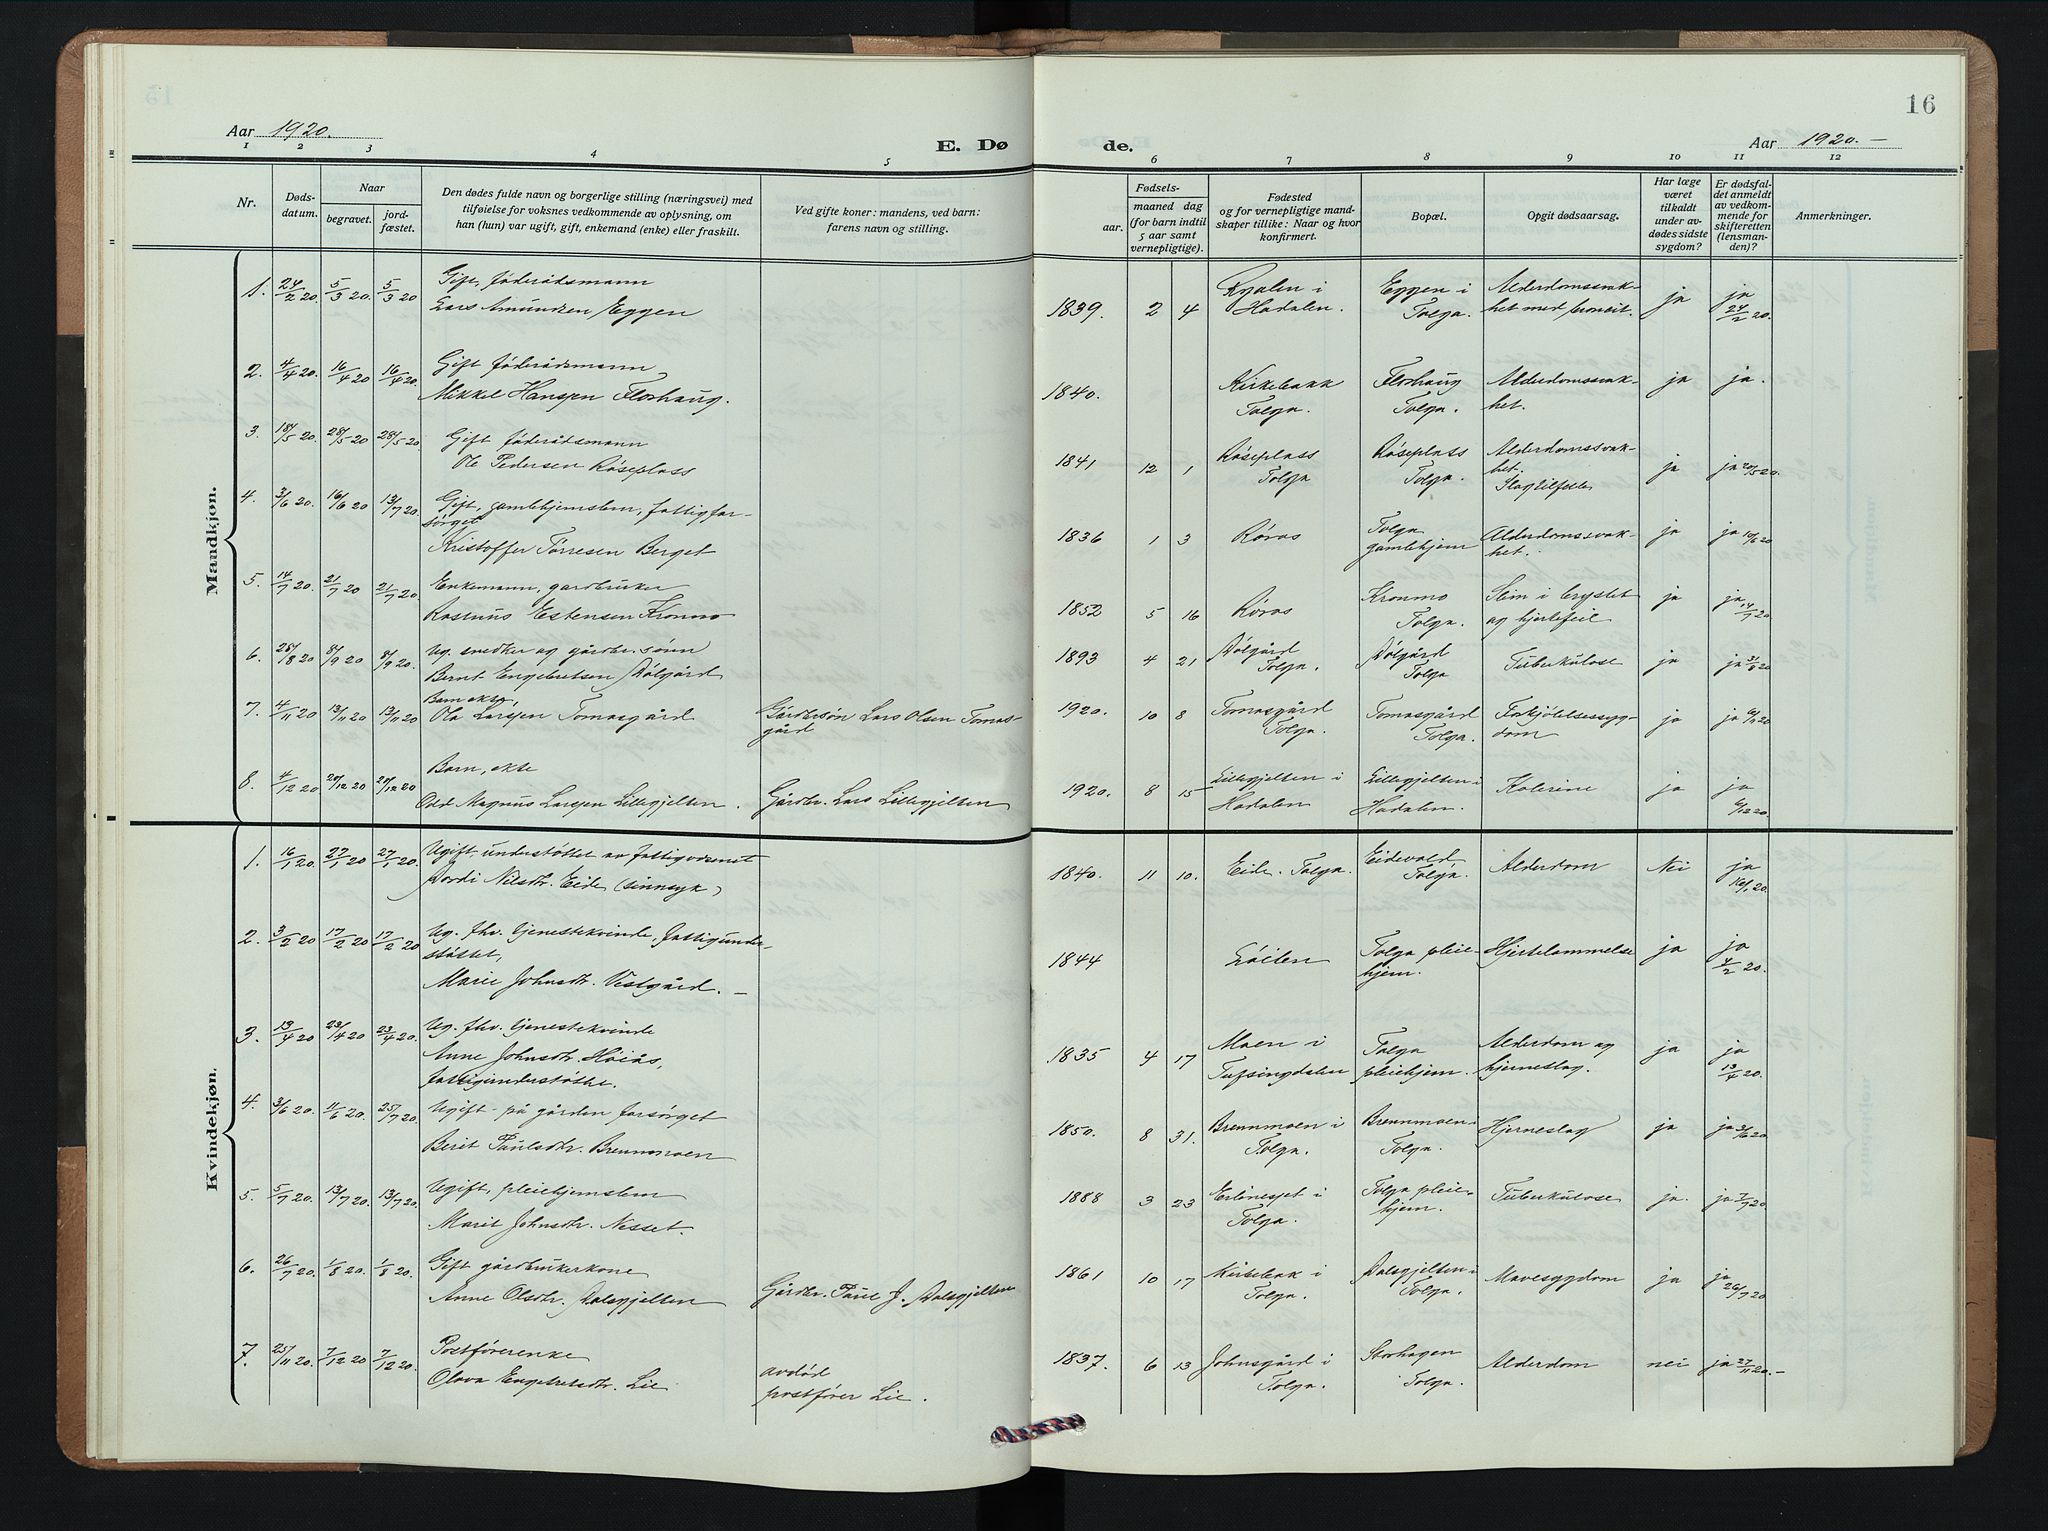 16
Aar 1920.
E. Dø
de.
Aar 1920. —
1 2 3 4 5 6 7 8 9 10 11 12
Nr.
Døds-
datum.
Naar
begravet.
jord-
fæstet.
Den dødes fulde navn og borgerlige stilling (næringsvei) med
tilføielse for voksnes vedkommende av oplysning, om
han (hun) var ugift, gift, enkemand (enke) eller fraskilt.
Ved gifte koner: mandens, ved barn:
farens navn og stilling.
Fødsels-
aar.
maaned dag
(for barn indtil
5 aar samt
vernepligtige).
Fødested
og for vernepligtige mand-
skaper tillike: Naar og hvor
konfirmert.
Bopæl.
Opgit dødsaarsag.
Har læge
været
tilkaldt
under av-
dødes sidste
sygdom?
Er dødsfal-
det anmeldt
av vedkom-
mende for
skifteretten
(lensman-
den)?
Anmerkninger.
Maandkjøn.
1. 24/2 20. 5/3 20. 5/3 20
Gift, føderådsmann
Lars Amundsen Eggen
1839. 2 4
Hodalen.
Eggen i
Tolga.
Alderdomssvak-
het med
ja
ja
24/2 20.
2. 4/4 20. 16/4 20 16/4 20.
Gift føderådsmann
Mikkel Hansen Florhaug.
1840.
Kirkebakk
Tolga.
Florhaug
Tolga.
Alderdomssvak-
het.
ja
ja.
3. 18/5 20. 28/5 20 28/5 20
Gift føderådsmann
Ole Pedersen Røseplass
1841 12 1
Røseplass
Tolga
Røseplass
Tolga.
Alderdomssvak-
het.
Slagtilfelle
ja
ja 20/5 20.
4. 3/6 20. 16/6 20 13/7 20.
Gift, gamlehjemslem, fattigfor-
sørget
Kristoffer Tørresen Berget
1836 1 3
Røros
Tolga
gamlehjem
Alderdomssvak-
het.
ja
ja 10/6 20
5. 14/7 20. 21/7 20 21/7 20.
Enkemann, gardbruker
Rasmus Estensen Kronmo
1852 5 16
Røros
Kronmo
Tolga.
Slim i brystet
og hjertefeil
ja
ja
14/7 20
6. 28/8 20 8/9 20 8/9 20.
Ug. snedker og gårdbr. sønn
Bernt Engebretsen Dølgård
1893 4 21
Dølgård
Tolga.
Dølgård
Tolga
Tuberkulose
ja
ja 31/8 20
7. 4/11 20 13/11 20 13/11 20
Barn ekte,
Ola Larssen Tomasgård
Gårdbrsøn Lars Olsen Tomas-
gård
1920. 10 8
Tomasgård
Tolga.
Tomasgård
Tolga.
Forkjølelsessyg-
dom
ja
ja 6/11 20
8. 4/12 20 20/12 20 20/12 20
Barn, ekte
Odd Magnus Larssen Lillegjelten.
Gårdbr. Lars Lillegjelten
1920. 8 15
Lillegjelten i
Hodalen
Lillegjelten i
Hodalen.
Kolerine
ja
ja
6/12 20
Kvindekjøn.
1. 16/1 20. 27/1 20 27/1 20.
Ugift, understøttet av fattigvæsenet
Dordi Nilsdtr. Eide (sinnsyk)
1840. 11 10.
Eide. Tolga.
Eidevold
Tolga.
Alderdom
Nei
ja
16/1 20.
2. 3/2 20 17/2 20 17/2 20
Ug. fhv. tjenestekvinde, fattigunder-
støttet,
Marie Johnsdtr. Vestgård. —
1844
Løiten
Tolga pleie-
hjem.
Hjertelammelse
ja
ja
4/2 20.
3. 13/4 20 23/4 20 23/4 20.
Ug. fhv. tjenestekvinde
Anne Johnsdtr. Høiås,
fattigunderstøttet.
1835 4 17
Moen i
Tufsingdalen
Tolga
pleiehjem.
Alderdom og
hjerneslag.
ja
ja
13/4 20.
4. 3/6 20. 11/6 20. 25/7 20.
Ugift - på gården forsørget
Berit Paulsdtr. Brennmoen
1850. 8 31.
Brennmoen i
Tolga.
Brennmoen i
Tolga.
Hjerneslag
ja
ja 3/6 20
5. 5/7 20. 13/7 20. 13/7 20.
Ugift, pleiehjemslem
Marit Johnsdtr. Nesset.
1888 3 23
Erlinesset i
Tolga.
Tolga pleie-
hjem.
Tuberkulose
ja.
ja 7/7 20.
6. 26/7 20. 1/8 20. 1/8 20.
Gift gårdbrukerkone
Anne Olsdtr. Dalsgjelten
Gårdbr. Paul J. Dalsgjelten
1861 10 17
Kirkebak i
Tolga.
Dalsgjelten i
Tolga.
Mavesygdom
ja
ja
26/7 20
7. 25/11 20. 7/12 20 7/12 20.
Postførerenke
Olava Engebretsdtr. Lie
avdød
postfører Lie.
1837. 6 13
Johnsgård i
Tolga.
Storhagen
Tolga.
Alderdom
nei
ja 27/11 20. —